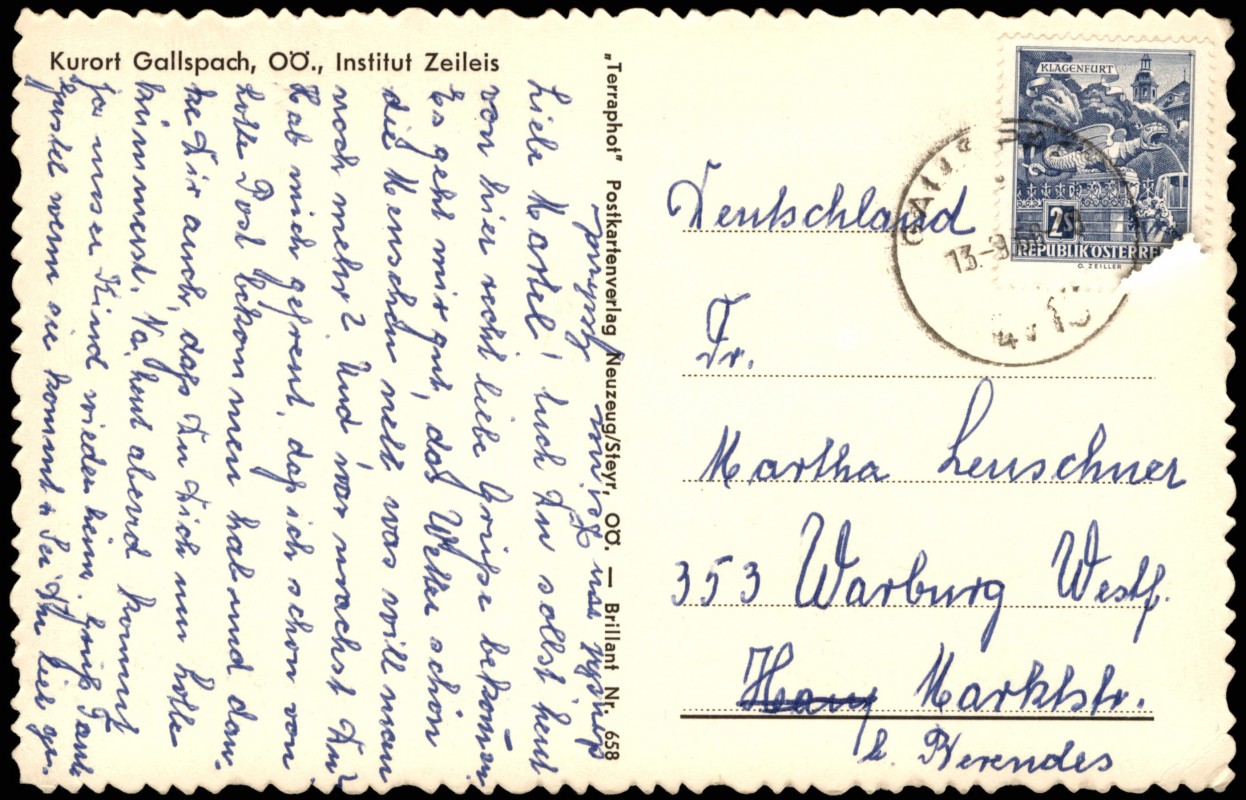 Kurort Gallspach, OÖ., Institut Zeileis
Liebe Martel! Auch Du sollst heut
von hier recht liebe Grüße bekommen.
Es geht mir gut, das Wetter schön
die Menschen nett was will man
noch mehr? Und was machst Du?
Hab mich gefreut, daß ich schon von
Lotte Post bekommen hab und dan-
ke Dir auch, daß Du Dich um Lotte
kümmerst. Na, heut abend kommt
ja unser Kind wieder heim. Grüß Tante
Gustel wenn sie kommt u. Sei Du lieb ge-
"Terraphot" Postkartenverlag Neuzeug/Steyr, OÖ. — Brillant Nr. 658
KLAGENFURT
2S
REPUBLIK ÖSTERREI
O. ZEILLER
13.-9
Deutschland
Fr.
Martha Leuschner
353 Warburg Westf.
Marktstr.
b. Berendes